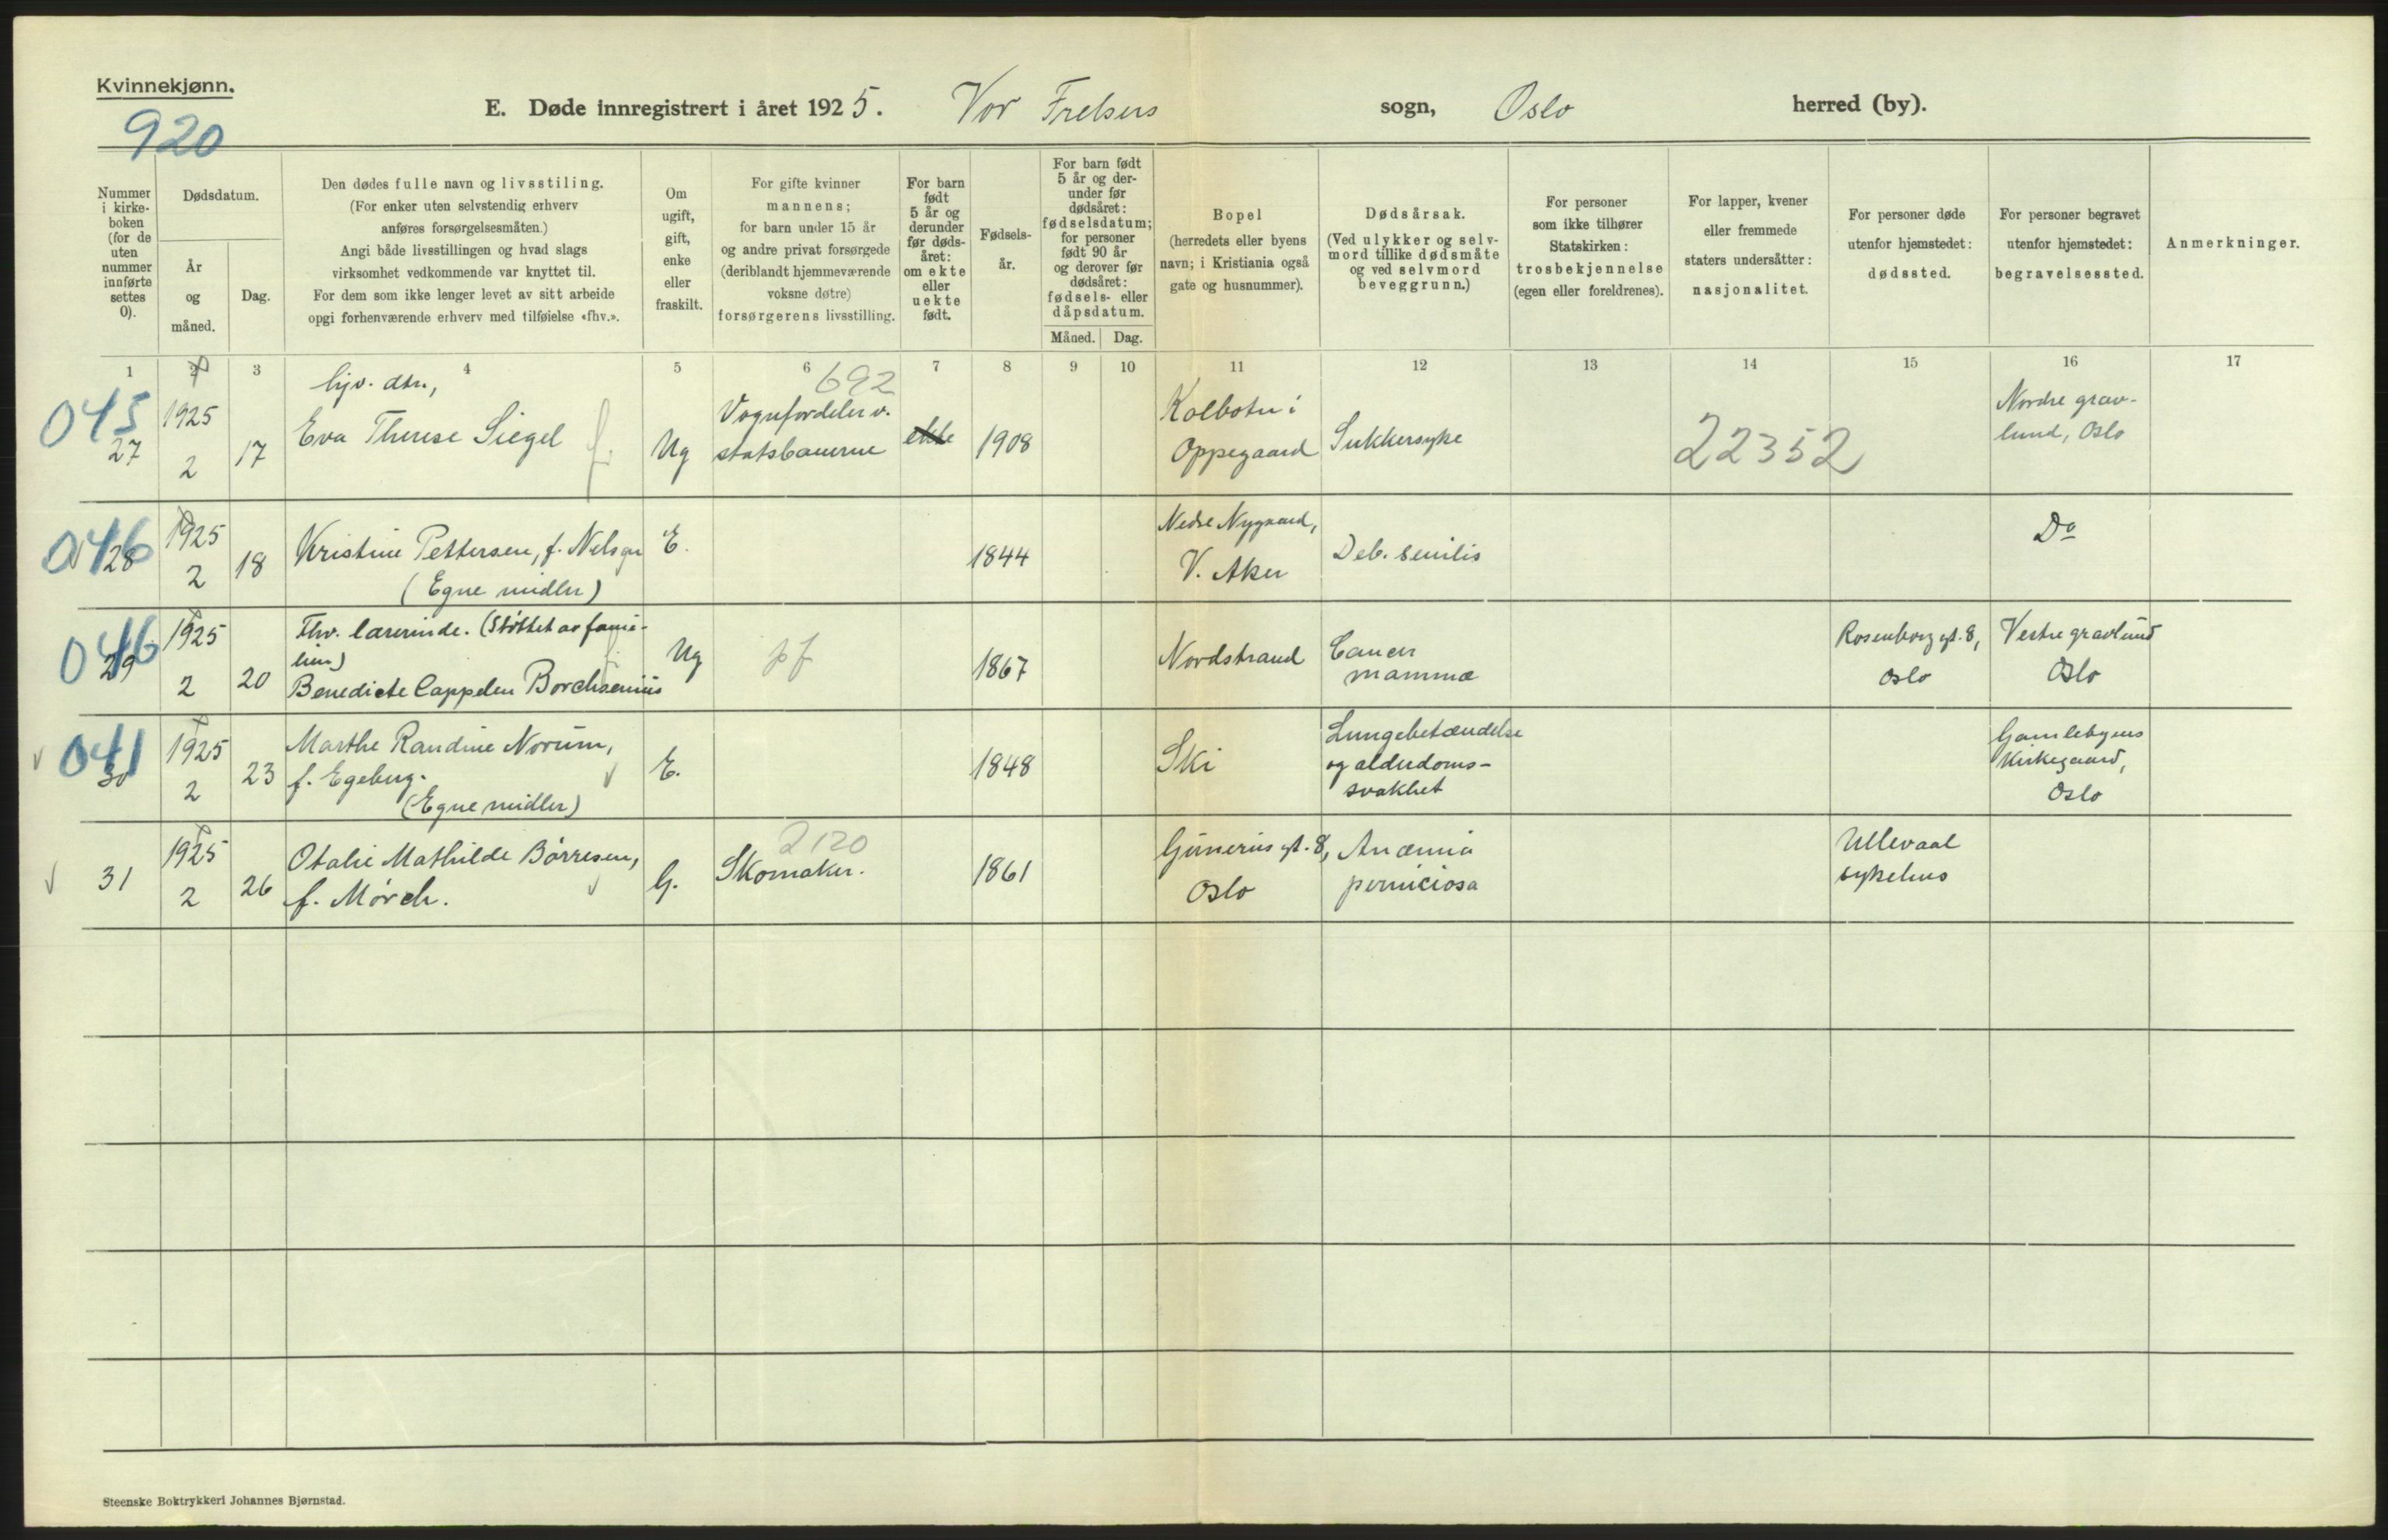 Kvinnekjønn.
920
E. Døde innregistrert i året 1925. Vor Frelsers sogn, Oslo herred (by).
Nummer i kirke-boken (for de uten nummer innførte settes 0).
Dødsdatum.
År og måned.
Dag.
Den dødes fulle navn og livsstiling.
(For enker uten selvstendig erhverv
anføres forsørgelsesmåten.)
Angi både livsstillingen og hvad slags
virksomhet vedkommende var knyttet til.
For dem som ikke lenger levet av sitt arbeide
opgi forhenværende erhverv med tilføielse «fhv.».
Om
ugift,
gift,
enke
eller
fraskilt.
For gifte kvinner
mannens;
for barn under 15 år
og andre privat forsørgede
(deriblandt hjemmeværende
voksne døtre)
forsørgerens livsstilling.
For barn
født
5 år og
derunder
før døds-
året:
om ekte
eller
uekte
født.
Fødsels-
år.
For barn født
5 år og der-
under før
dødsåret:
fødselsdatum;
for personer
født 90 år
og derover før
dødsåret:
fødsels- eller
dåpsdatum.
Måned. Dag.
Bopel
(herredets eller byens
navn; i Kristiania også
gate og husnummer).
Dødsårsak.
(Ved ulykker og selv-
mord tillike dødsmåte
og ved selvmord
beveggrunn.)
For personer
som ikke tilhører
Statskirken:
trosbekjennelse
(egen eller foreldrenes).
For lapper, kvener
eller fremmede
staters undersåtter:
nasjonalitet.
For personer døde
utenfor hjemstedet:
dødssted.
For personer begravet
utenfor hjemstedet:
begravelsessted.
Anmerkninger.
1 2 3 4 5 6 7 8 9 10 11 12 13 14 15 16 17
045
27
1925
2
17
hjv. dtr.,
Eva Therese Siegel
f.
Ug
692
Vognfordeler v.
statsbanerne
ekte
1908
Kolbotn i
Oppegaard
Sukkersyke
22352
Nordre grav-
lund, Oslo
046
28
1925
2
18
Kristine Pettersen, f. Nelson
(Egne midler)
E.
1844
Nedre Nygaard,
V. Aker
Deb. senilis
Do
046
29
1925
2
20
Fhv. lærerinde. (Støttet av fami-
lien)
Benedicte Cappelen Borchsenius
Ug
pf
1867
Nordstrand
Cancer
mammæ
Rosenborg gt. 8,
Oslo
Vestre gravlund
Oslo
041
30
1925
2
23
Marthe Randine Norum,
f. Egeberg.
(Egne midler)
E.
1848
Ski
Lungebetændelse
og alderdoms-
svakhet
Gamlebyens
Kirkegaard,
Oslo
31
1925
2
26
Otalie Mathilde Børresen,
f. Mørch.
G.
2120
Skomaker.
1861
Gunerius gt. 8,
Oslo
Anæmia
perniciosa
Ullevaal
sykehus
Steenske Boktrykkeri Johannes Bjørnstad.